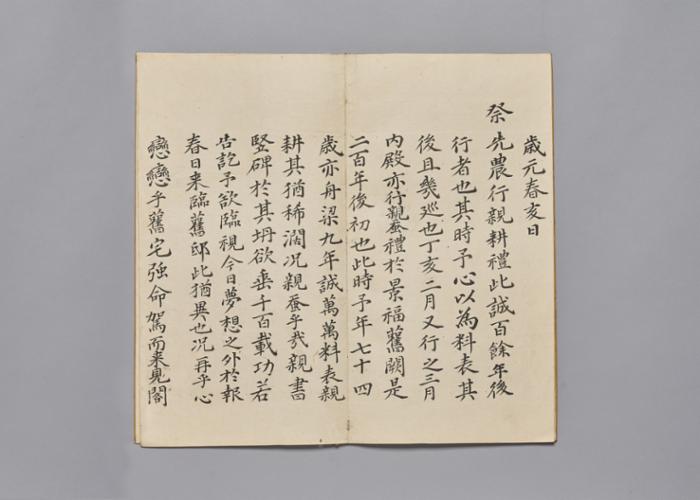 歲元春亥日
祭先農行親耕禮此誠百餘年後
行者也其時予心以為料表其
後且幾巡也丁亥二月又行之三月
內殿亦行親蚕禮於景福舊闕是
二百年後初也此時予年七十四
歲亦舟梁九年誠萬萬料表親
耕其猶稀濶况親蚕乎哉親書
竪碑於其坍欲垂千百載功若
告訖予欲臨視今日夢想之外於報
春日来臨舊邸此猶異也况再乎心
戀戀乎舊宅強命駕而来見閣